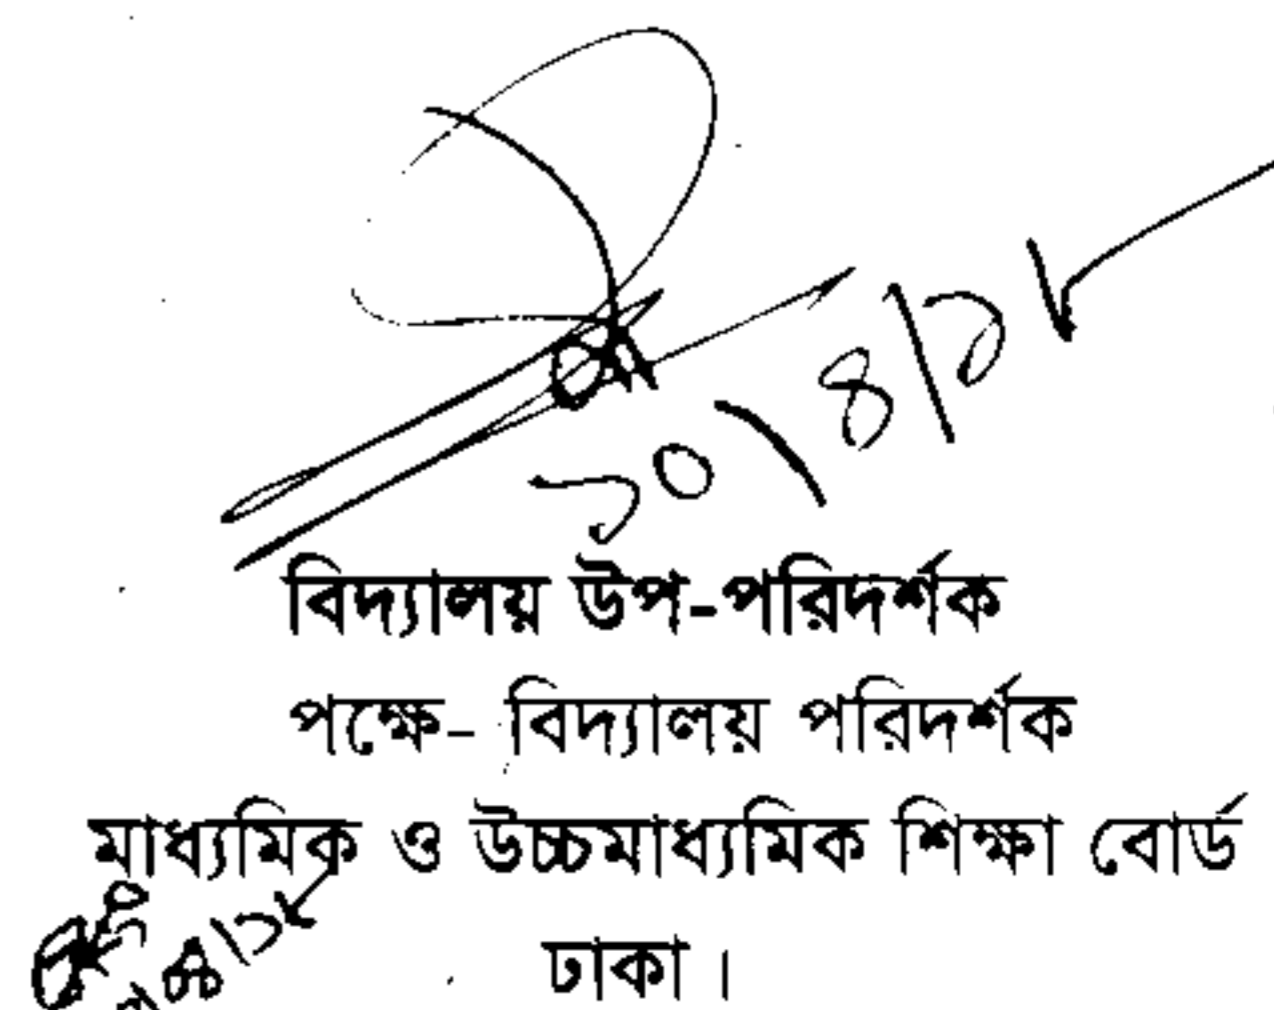 ১০/৪/১৮
বিদ্যালয় উপ-পরিদর্শক
পক্ষে- বিদ্যালয় পরিদর্শক
মাধ্যমিক ও উচ্চমাধ্যমিক শিক্ষা বোর্ড
ঢাকা।